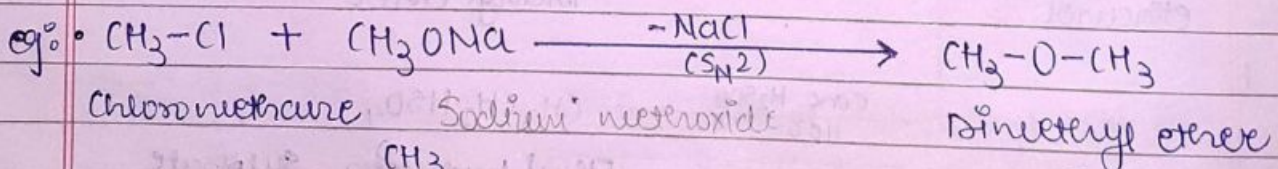 eg:• CH₃-Cl + CH₃ONa -NaCl (SN2) → CH₃-O-CH₃
Chloromethane Sodium methoxide Dimethyl ether
CH₃